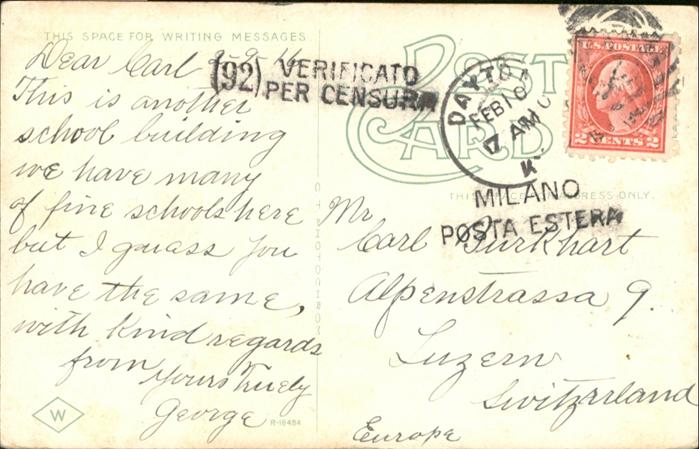 THIS SPACE FOR WRITING MESSAGES
Dear Carl
This is another
school building
we have many
of fine schools here
but I guass you
have the same,
with Kind regards
from
Yours Truely
George
W
R-16484
(92) VERIFICATO
PER CENSURA
POST
CARD
DAYTON
FEB 10
AM
U.S. POSTAGE
2 CENTS 2
THIS SPACE ADDRESS ONLY.
MILANO
POSTA ESTERA
Mr
Carl Purkhart
Alpenstrassa 9.
Luzern
Switzrland
Europe